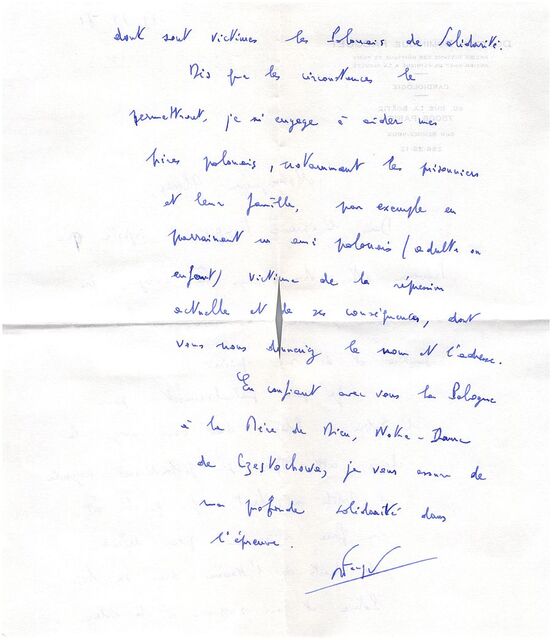 dont sont victimes les Polonais de Solidarité.
Dès que les circonstances le
permettront, je m'engage à aider mes
frères polonais, notamment les prisonniers
et leur famille, par exemple en
parrainant un ami polonais (adulte ou
enfant) victime de la répression
actuelle et de ses conséquences, dont
vous nous donnerez le nom et l'adresse.
En confiant avec vous la Pologne
à la Mère de Dieu, Notre-Dame
de Czestochowa, je vous assure de
ma profonde solidarité dans
l'épreuve.